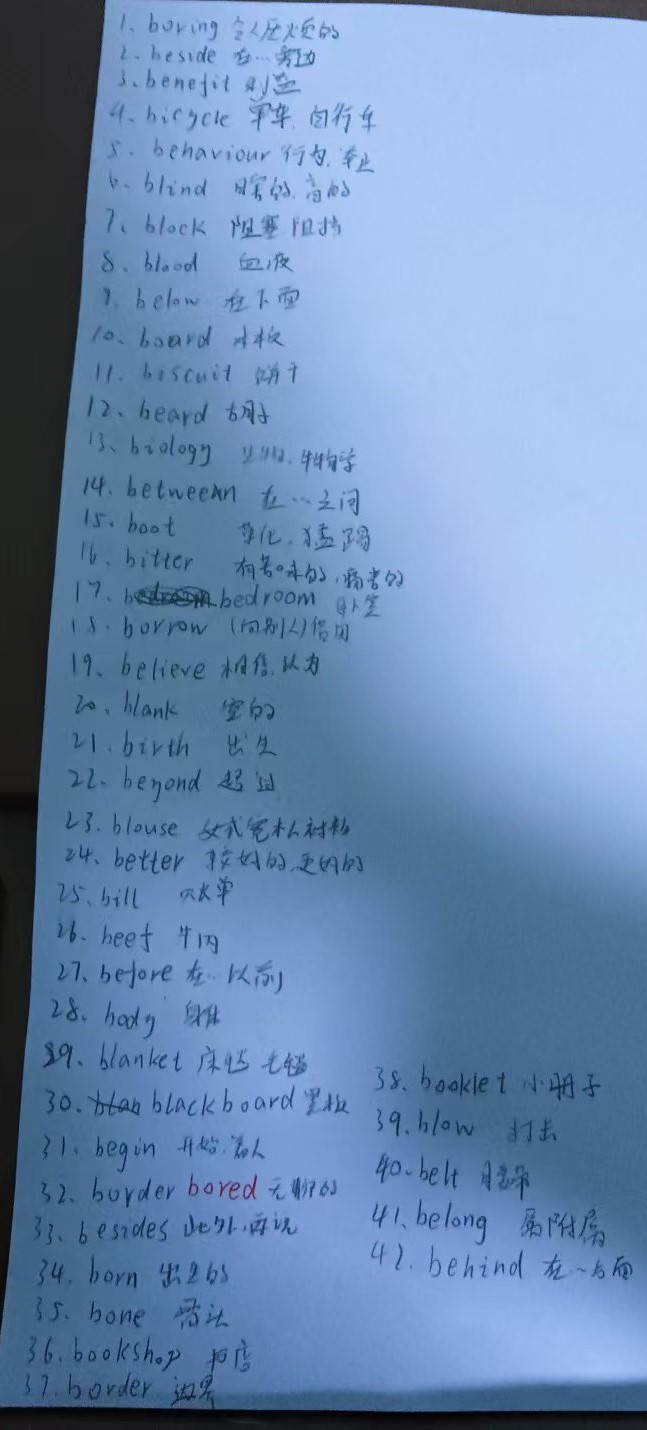 1. boring 令人厌烦的
2. beside 在…旁边
3. benefit 利益
4. bicycle 单车.自行车
5. behaviour 行为.举止
6. blind 瞎的.盲的
7. block 阻塞 阻挡
8. blood 血液
9. below 在下面
10. board 木板
11. biscuit 饼干
12. beard 胡子
13. biology 生物.生物学
14. between 在…之间
15. boot 猛踢
16. bitter 有苦味的.痛苦的
17. bedroom 卧室
18. borrow (向别人)借用
19. believe 相信.认为
20. blank 空的
21. birth 出生
22. beyond 超过
23. blouse 女式宽松衬衫
24. better 较好的.更好的
25. bill 账单
26. beef 牛肉
27. before 在…以前
28. body 身体
29. blanket 床毯 毛毯
30. blackboard 黑板
31. begin 开始.着人
32. border bored 无聊的
33. besides 此外.再说
34. born 出生的
35. bone 骨头
36. bookshop 书店
37. border 边界
38. booklet 小册子
39. blow 打击
40. belt 腰带
41. belong 属附属
42. behind 在…后面